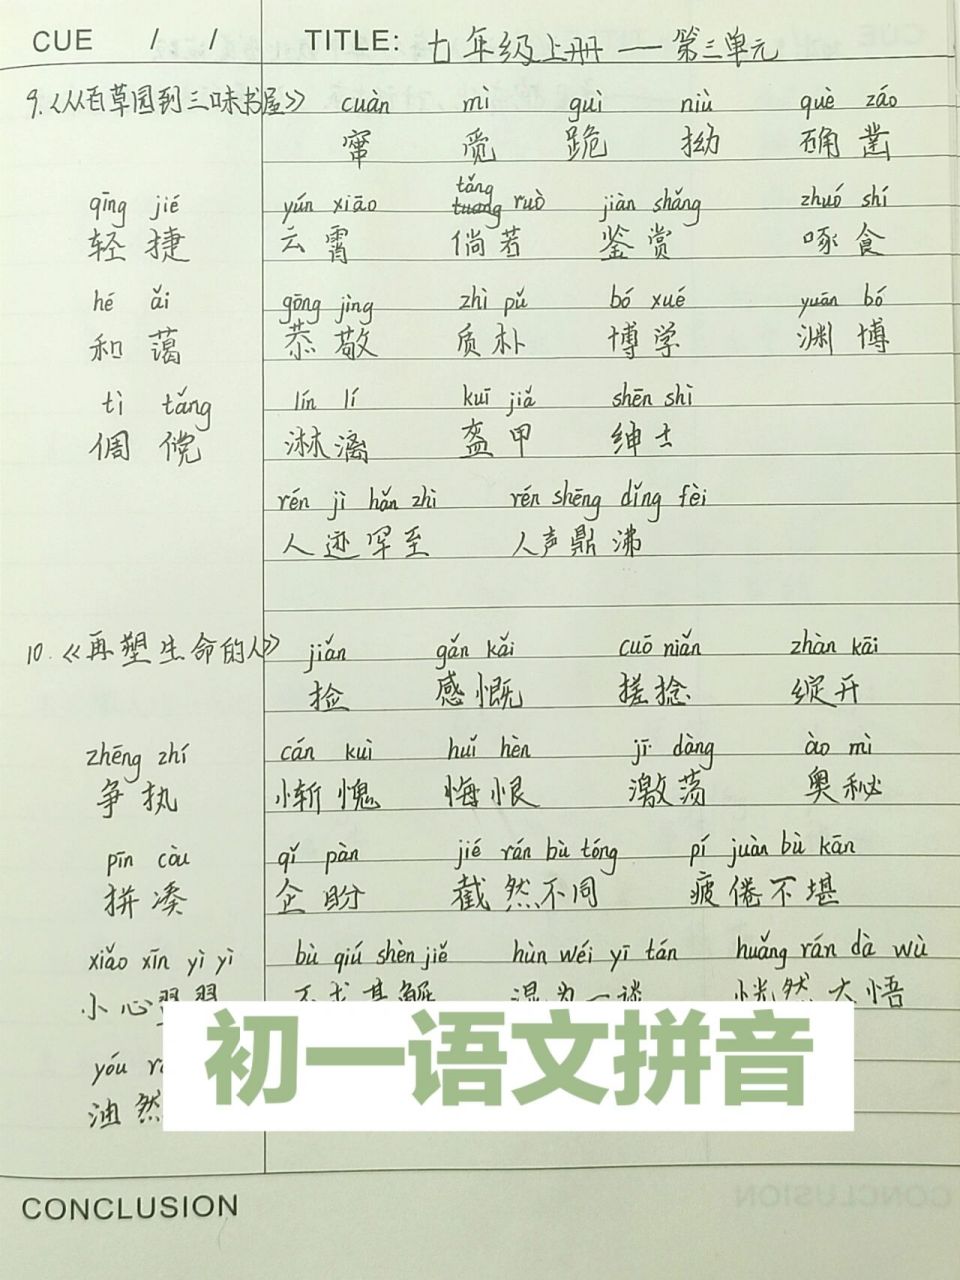 CUE / / TITLE: 七年级上册——第三单元
9.《从百草园到三味书屋》 cuàn mì guì niù què záo
窜 觅 跪 拗 确凿
qīng jié yún xiāo tǎng ruò jiàn shǎng zhuó shí
轻捷 云霄 倘若 鉴赏 啄食
hé ǎi gōng jìng zhì pǔ bó xué yuān bó
和蔼 恭敬 质朴 博学 渊博
tì tǎng lín lí kuī jiǎ shēn shì
倜傥 淋漓 盔甲 绅士
rén jì hǎn zhì rén shēng dǐng fèi
人迹罕至 人声鼎沸
10.《再塑生命的人》 jiǎn gǎn kǎi cuō niǎn zhàn kāi
捡 感慨 搓捻 绽开
zhēng zhí cán kuì huǐ hèn jī dàng ào mì
争执 惭愧 悔恨 激荡 奥秘
pīn còu qǐ pàn jié rán bù tóng pí juàn bù kān
拼凑 企盼 截然不同 疲倦不堪
xiǎo xīn yì yì bù qiú shèn jiě hùn wéi yī tán huǎng rán dà wù
小心翼翼 不求甚解 混为一谈 恍然大悟
yóu
油然
初一语文拼音
CONCLUSION